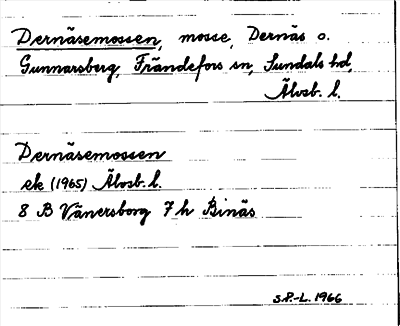 Dernäsemossen, mosse, Dernäs o.
Gunnarsberg, Frändefors sn, Sundals hd,
Älvsb. l.
Dernäsemossen
ek (1965) Älvsb. l.
8 B Vänersborg 7 h Binäs
S.P.-L. 1966